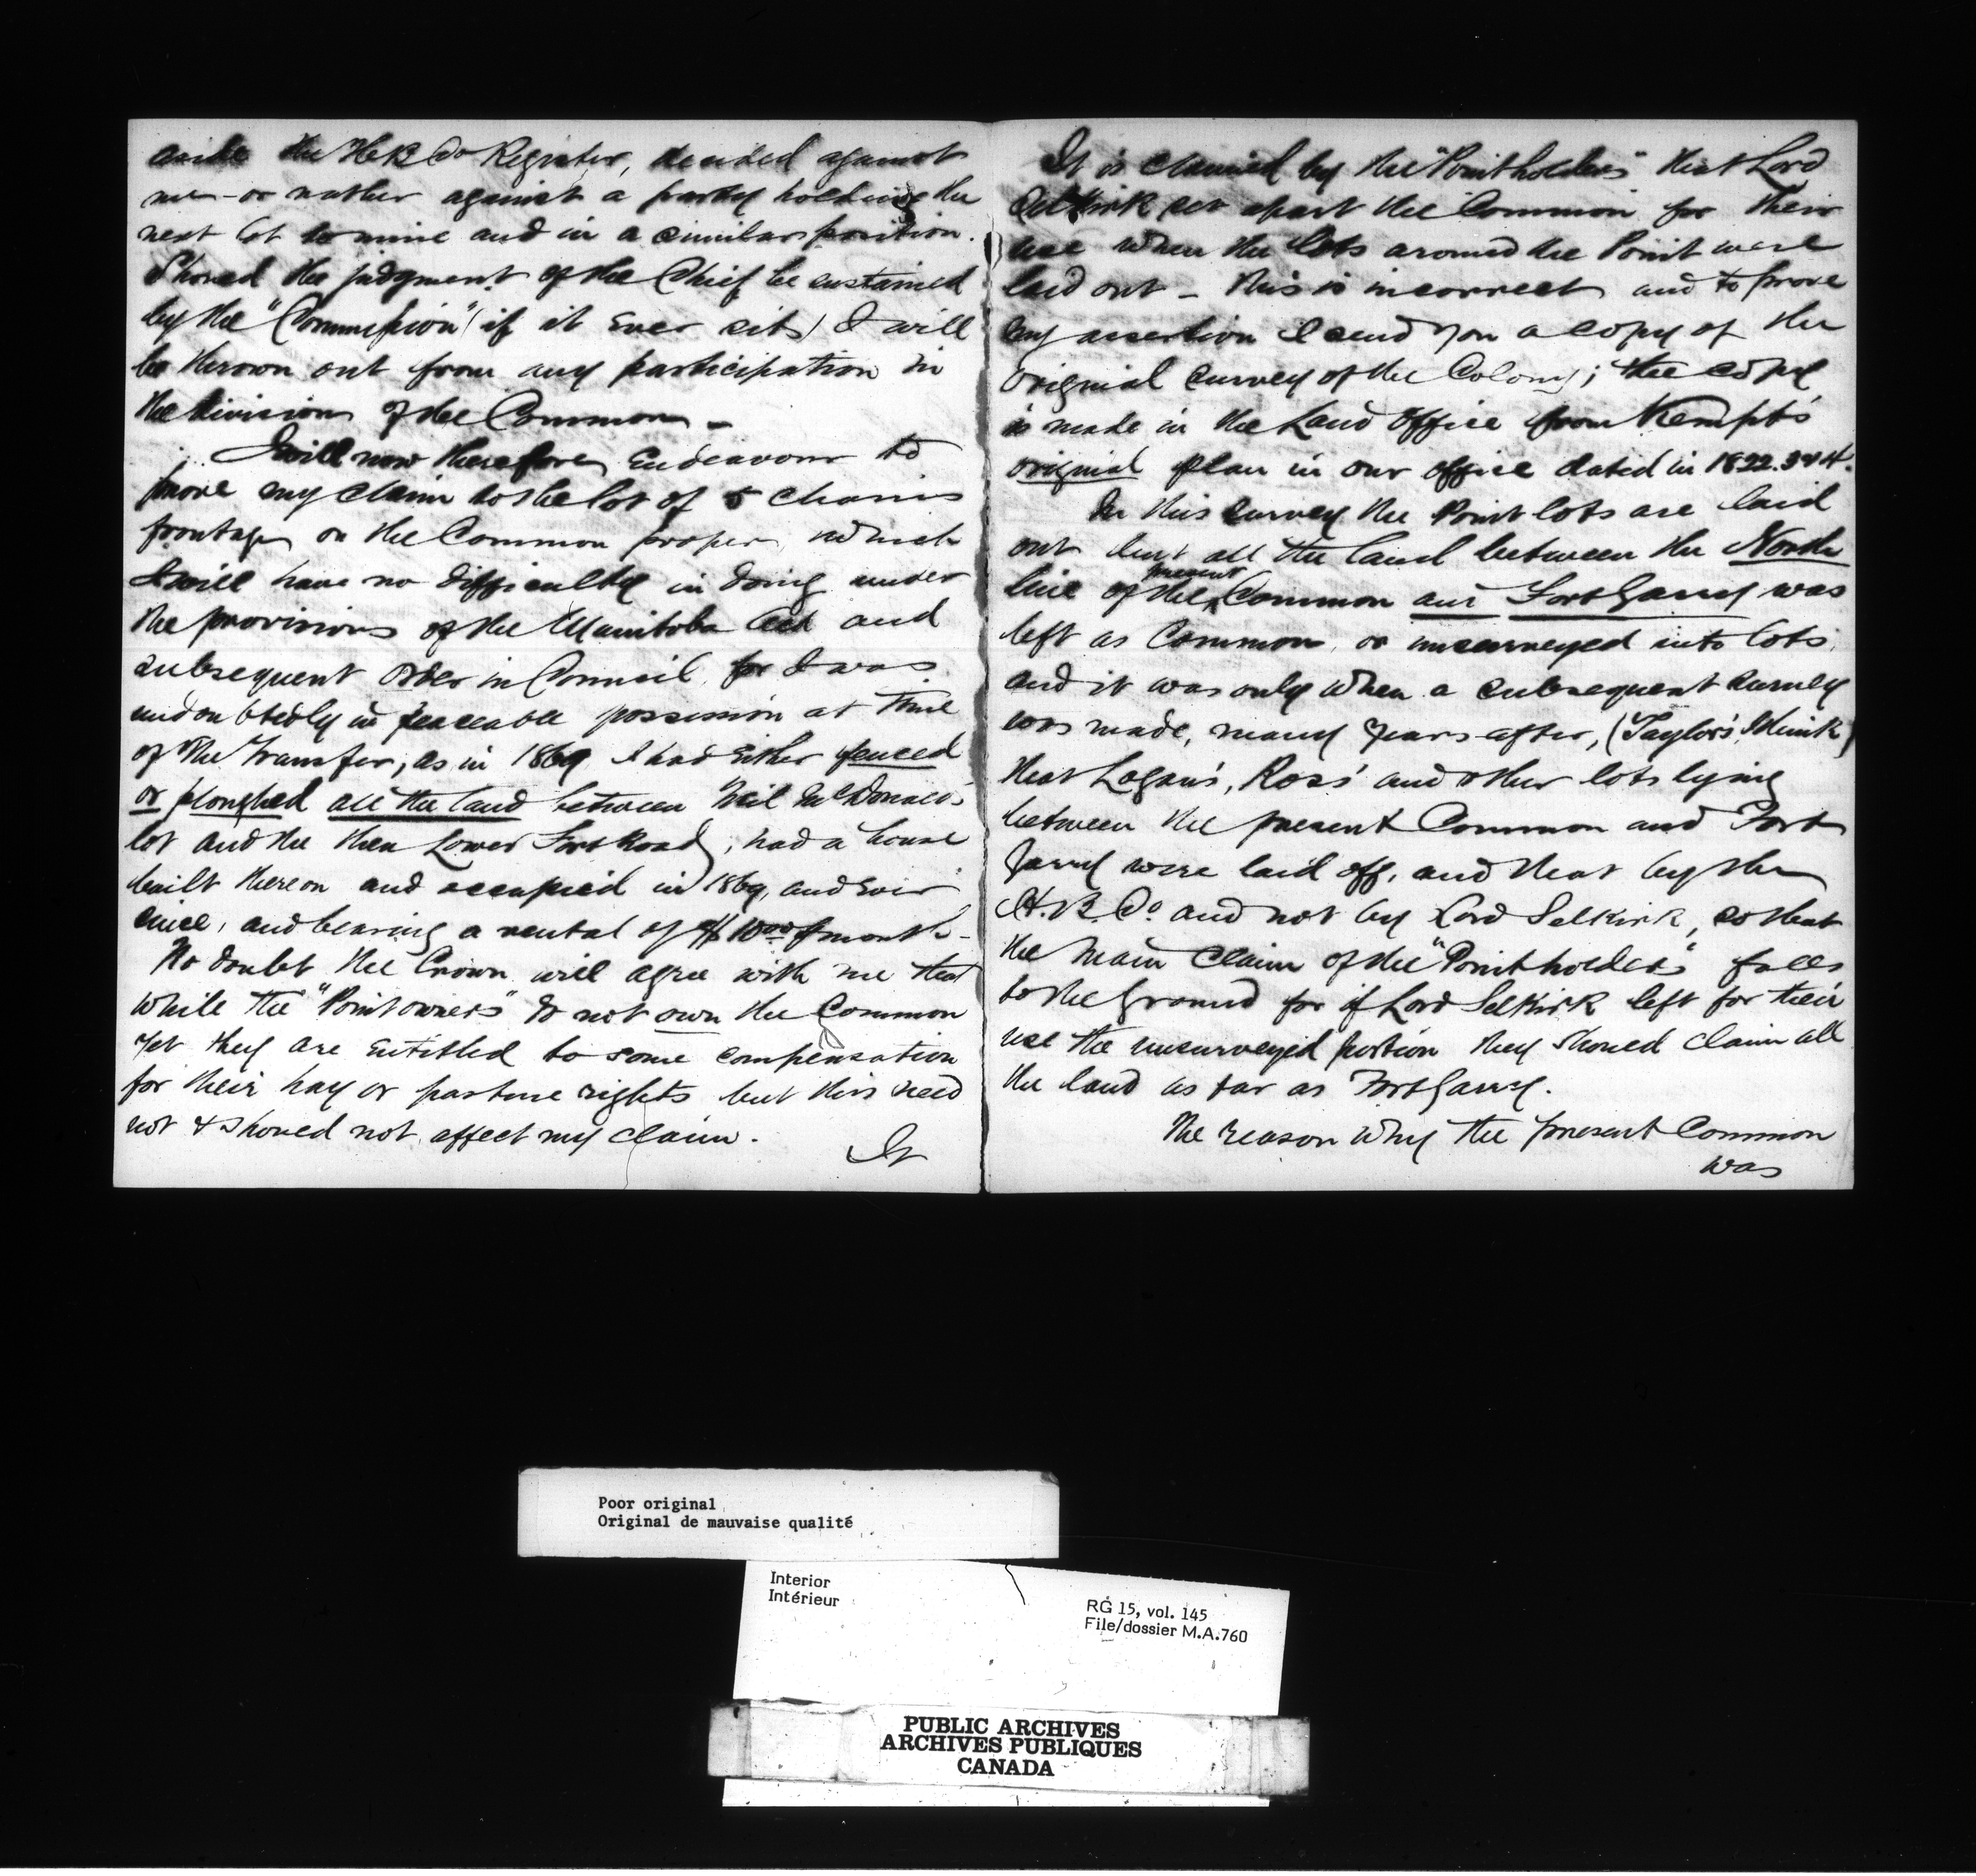 aside the H B Co Register, decided against
me - or rather against a party holding the
next lot to mine and in a similar position.
Should the judgment of the Chief be sustained
by the "Commission" (if it ever sits) I will
be thrown out from any participation in
the division of the Common -
I will now therefore endeavour to
prove my claim to the lot of 5 chains
frontage on the Common proper, which
I will have no difficulty in doing under
the provisions of the Manitoba Act and
subsequent Order in Council, for I was
undoubtedly in peaceable possession at time
of the transfer, as in 1869 I had either fenced
or ploughed all the land between Neil McDonald's
lot and the then Lower Fort Road, had a house
built thereon and occupied in 1869, and ever
since, and bearing a rental of $10.00 p month -
No doubt the Crown will agree with me that
while the "Point owners" do not own the Common
yet they are entitled to some compensation
for their hay or pasture rights but this need
not & should not affect my claim.
It
It is claimed by the "Pointholders" that Lord
Selkirk set apart the Common for their
use when the lots around the Point were
laid out - this is incorrect and to prove
my assertion I send you a copy of the
original survey of the Colony; the copy
is made in the Land Office from Kempt's
original plan in our office dated in 1822. 3 & 4.
In this survey the Point lots are laid
out but all the land between the North
line of the present Common and Fort Garry was
left as Common, or unsurveyed into lots,
and it was only when a subsequent survey
was made, many years after, (Taylor's I think)
that Logan's, Ross' and other lots lying
between the present Common and Fort
Garry were laid off, and that by the
H. B. Co. and not by Lord Selkirk, so that
the main claim of the "Pointholders" falls
to the ground for if Lord Selkirk left for their
use the unsurveyed portion they should claim all
the land as far as Fort Garry.
The reason why the present Common
was
Poor original
Original de mauvaise qualité
Interior
Intérieur
RG 15, vol. 145
File/dossier M.A.760
PUBLIC ARCHIVES
ARCHIVES PUBLIQUES
CANADA